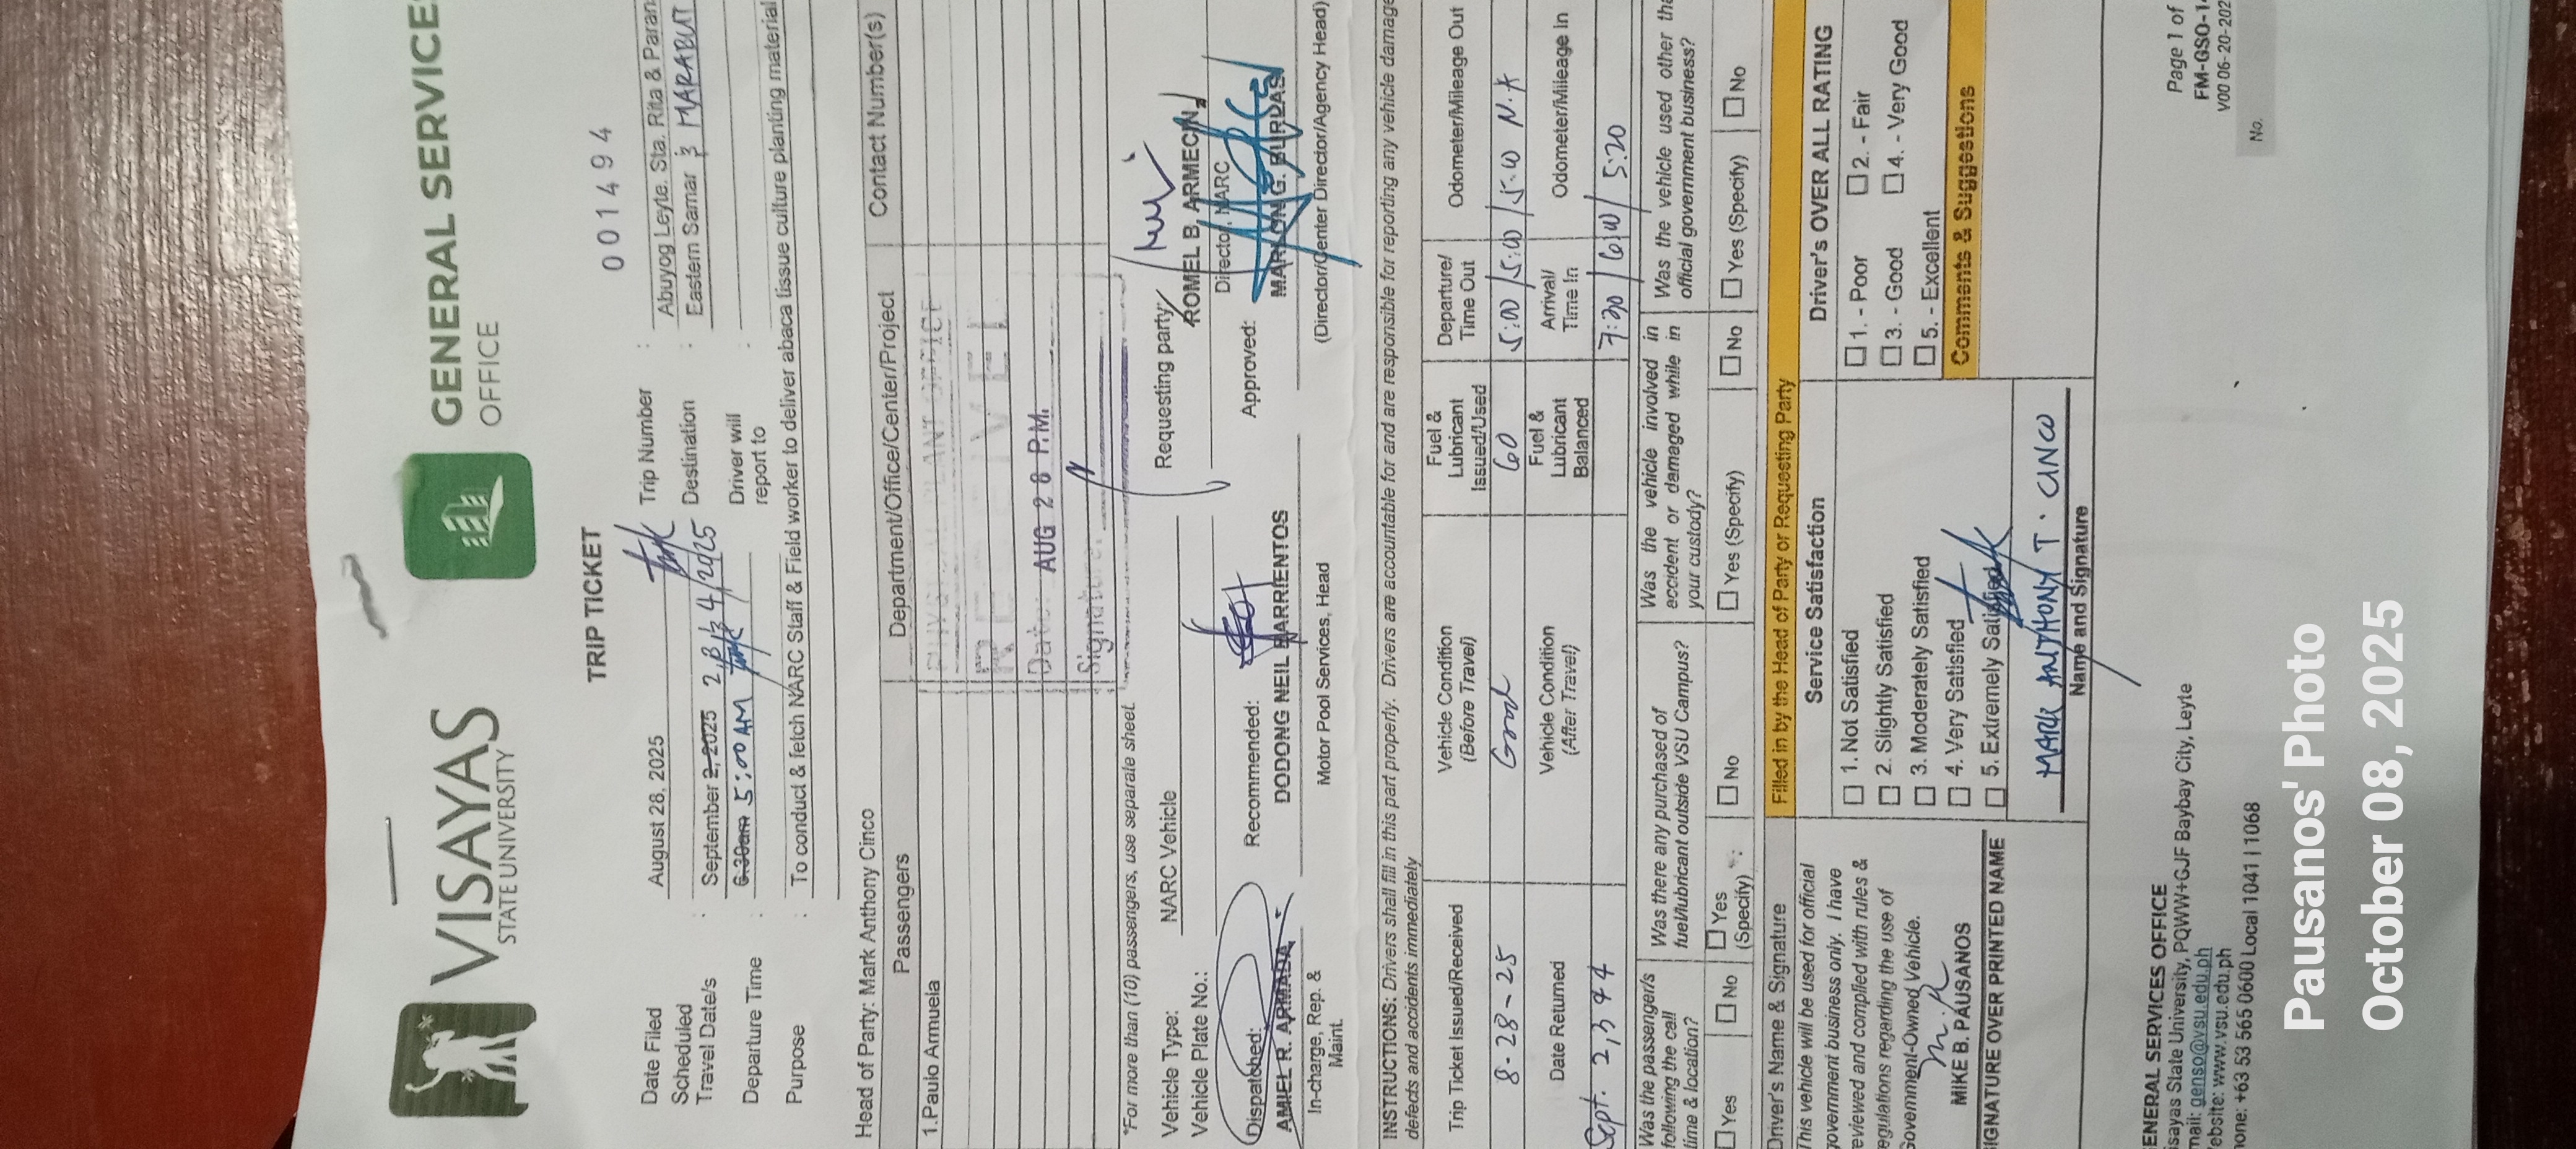 VISAYAS
STATE UNIVERSITY
GENERAL SERVICE
OFFICE
TRIP TICKET
001494
Date Filed : August 28, 2025
Trip Number :
Scheduled
Travel Date/s : September 2, 2025 2, 3 4/2025
Destination : Abuyog Leyte. Sta. Rita & Paran
Eastern Samar & MARABUT
Departure Time : 6:30am 5:00 AM
Driver will
report to :
Purpose : To conduct & fetch NARC Staff & Field worker to deliver abaca tissue culture planting material
Head of Party: Mark Anthony Cinco
Passengers Department/Office/Center/Project Contact Number(s)
1.Paulo Armuela
Date: AUG 28 P.M.
Signature:
*For more than (10) passengers, use separate sheet.
Vehicle Type: NARC Vehicle
Vehicle Plate No.:
Requesting party:
ROMEL B. ARMECIN
Director, NARC
Dispatched:
AMIEL R. ARMADA
In-charge, Rep. &
Maint.
Recommended:
DODONG NEIL BARRIENTOS
Motor Pool Services, Head
Approved:
MARLON G. BURLAS
(Director/Center Director/Agency Head)
INSTRUCTIONS: Drivers shall fill in this part properly. Drivers are accountable for and are responsible for reporting any vehicle damage
defects and accidents immediately
Trip Ticket Issued/Received
Vehicle Condition
(Before Travel)
Fuel &
Lubricant
Issued/Used
Departure/
Time Out
Odometer/Mileage Out
8-28-25 Good 60 5:00/5:00/5:00
Date Returned
Vehicle Condition
(After Travel)
Fuel &
Lubricant
Balanced
Arrival/
Time In
Odometer/Mileage In
Sept. 2,3 +4 7:30/6:00/5:20
Was the passenger/s
following the call
time & location?
Was there any purchased of
fuel/lubricant outside VSU Campus?
Was the vehicle involved in
accident or damaged while in
your custody?
Was the vehicle used other tha
official government business?
Yes No
Yes
(Specify) : No
Yes (Specify) No
Yes (Specify) No
Driver's Name & Signature
Filled in by the Head of Party or Requesting Party
This vehicle will be used for official
government business only. I have
eviewed and complied with rules &
egulations regarding the use of
Government-Owned Vehicle.
MIKE B. PAUSANOS
IGNATURE OVER PRINTED NAME
Service Satisfaction
1. Not Satisfied
2. Slightly Satisfied
3. Moderately Satisfied
4. Very Satisfied
5. Extremely Satisfied
MARK ANTHONY T. CINCO
Name and Signature
Driver's OVER ALL RATING
1. - Poor 2. - Fair
3. - Good 4. - Very Good
5. - Excellent
Comments & Suggestions
ENERAL SERVICES OFFICE
isayas State University, PQWW+GJF Baybay City, Leyte
mail: genso@vsu.edu.ph
ebsite: www.vsu.edu.ph
hone: +63 53 565 0600 Local 1041 | 1068
Page 1 of
FM-GSO-1
V00 06-20-202
No.
Pausanos' Photo
October 08, 2025